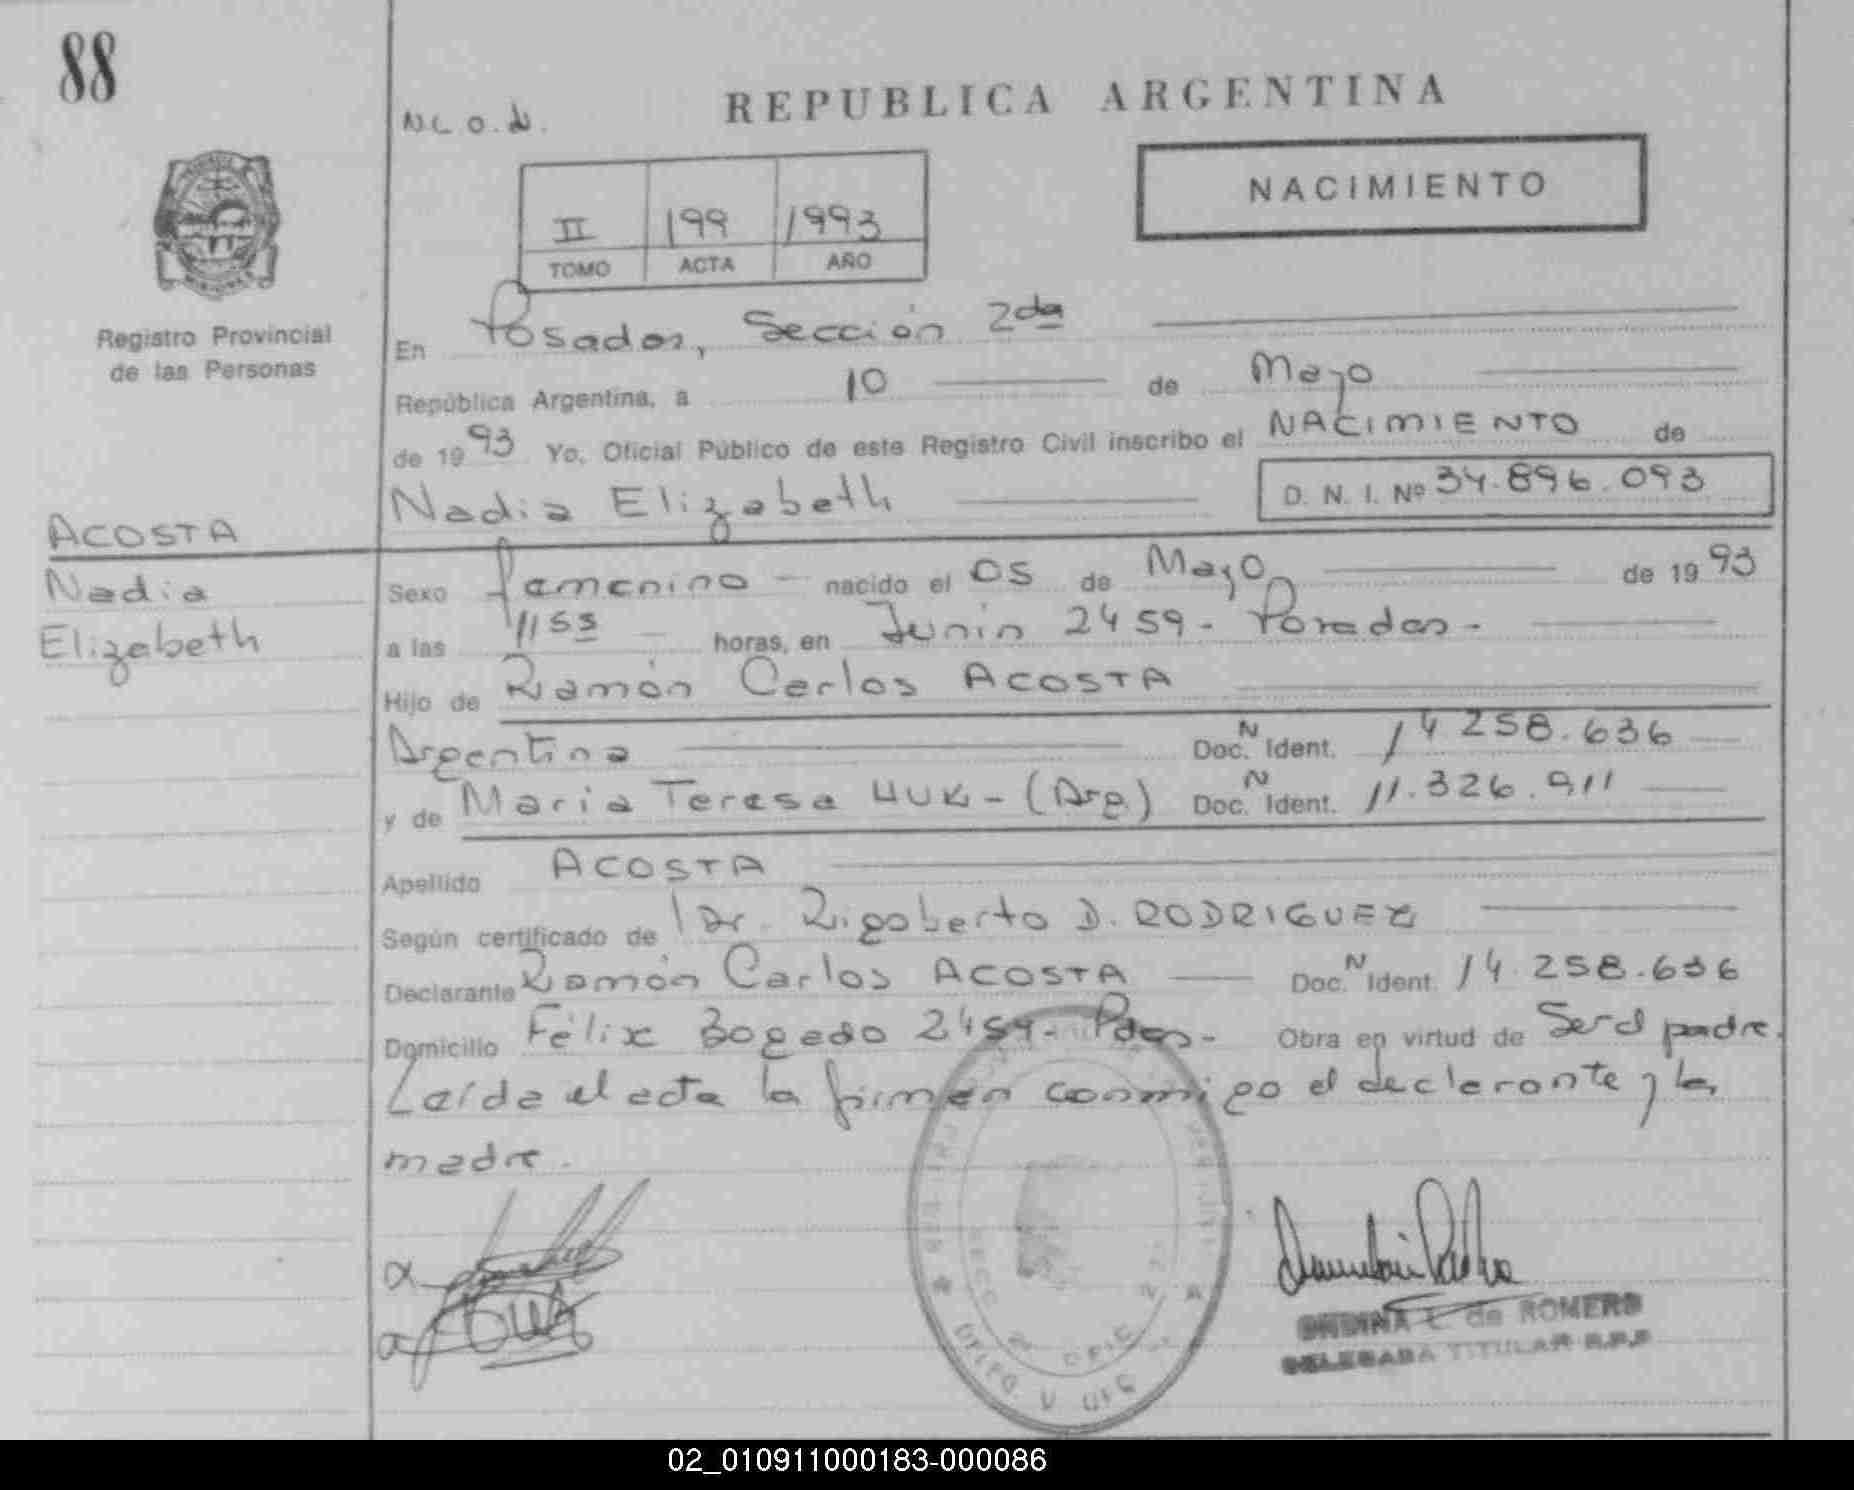 88
N L O. N.
REPUBLICA ARGENTINA
NACIMIENTO
II 199 1993
TOMO ACTA AÑO
Registro Provincial
de las Personas
En Posadas, Sección 2da
República Argentina, a 10 de Mayo
de 1993 Yo, Oficial Público de este Registro Civil inscribo el NACIMIENTO de
Nadia Elizabeth D. N. I. Nº 34.896.093
ACOSTA
Nadia
Elizabeth
Sexo femenino - nacido el 05 de Mayo de 1993
a las 1155 horas, en Junín 2459 - Posadas -
Hijo de Ramón Carlos ACOSTA
Argentina Doc. N Ident. 14.258.636
y de María Teresa HUK - (Arg.) Doc. N Ident. 11.326.911
Apellido ACOSTA
Según certificado de Dr. Rigoberto D. RODRIGUEZ
Declarante Ramón Carlos ACOSTA Doc. N Ident. 14.258.636
Domicilio Félix Bogado 2459 - Pdas - Obra en virtud de Ser el padre.
Leída el acta la firman conmigo el declarante y la
madre.
ONDINA L. de ROMERO
DELEGADA TITULAR R.P.P
02_010911000183-000086